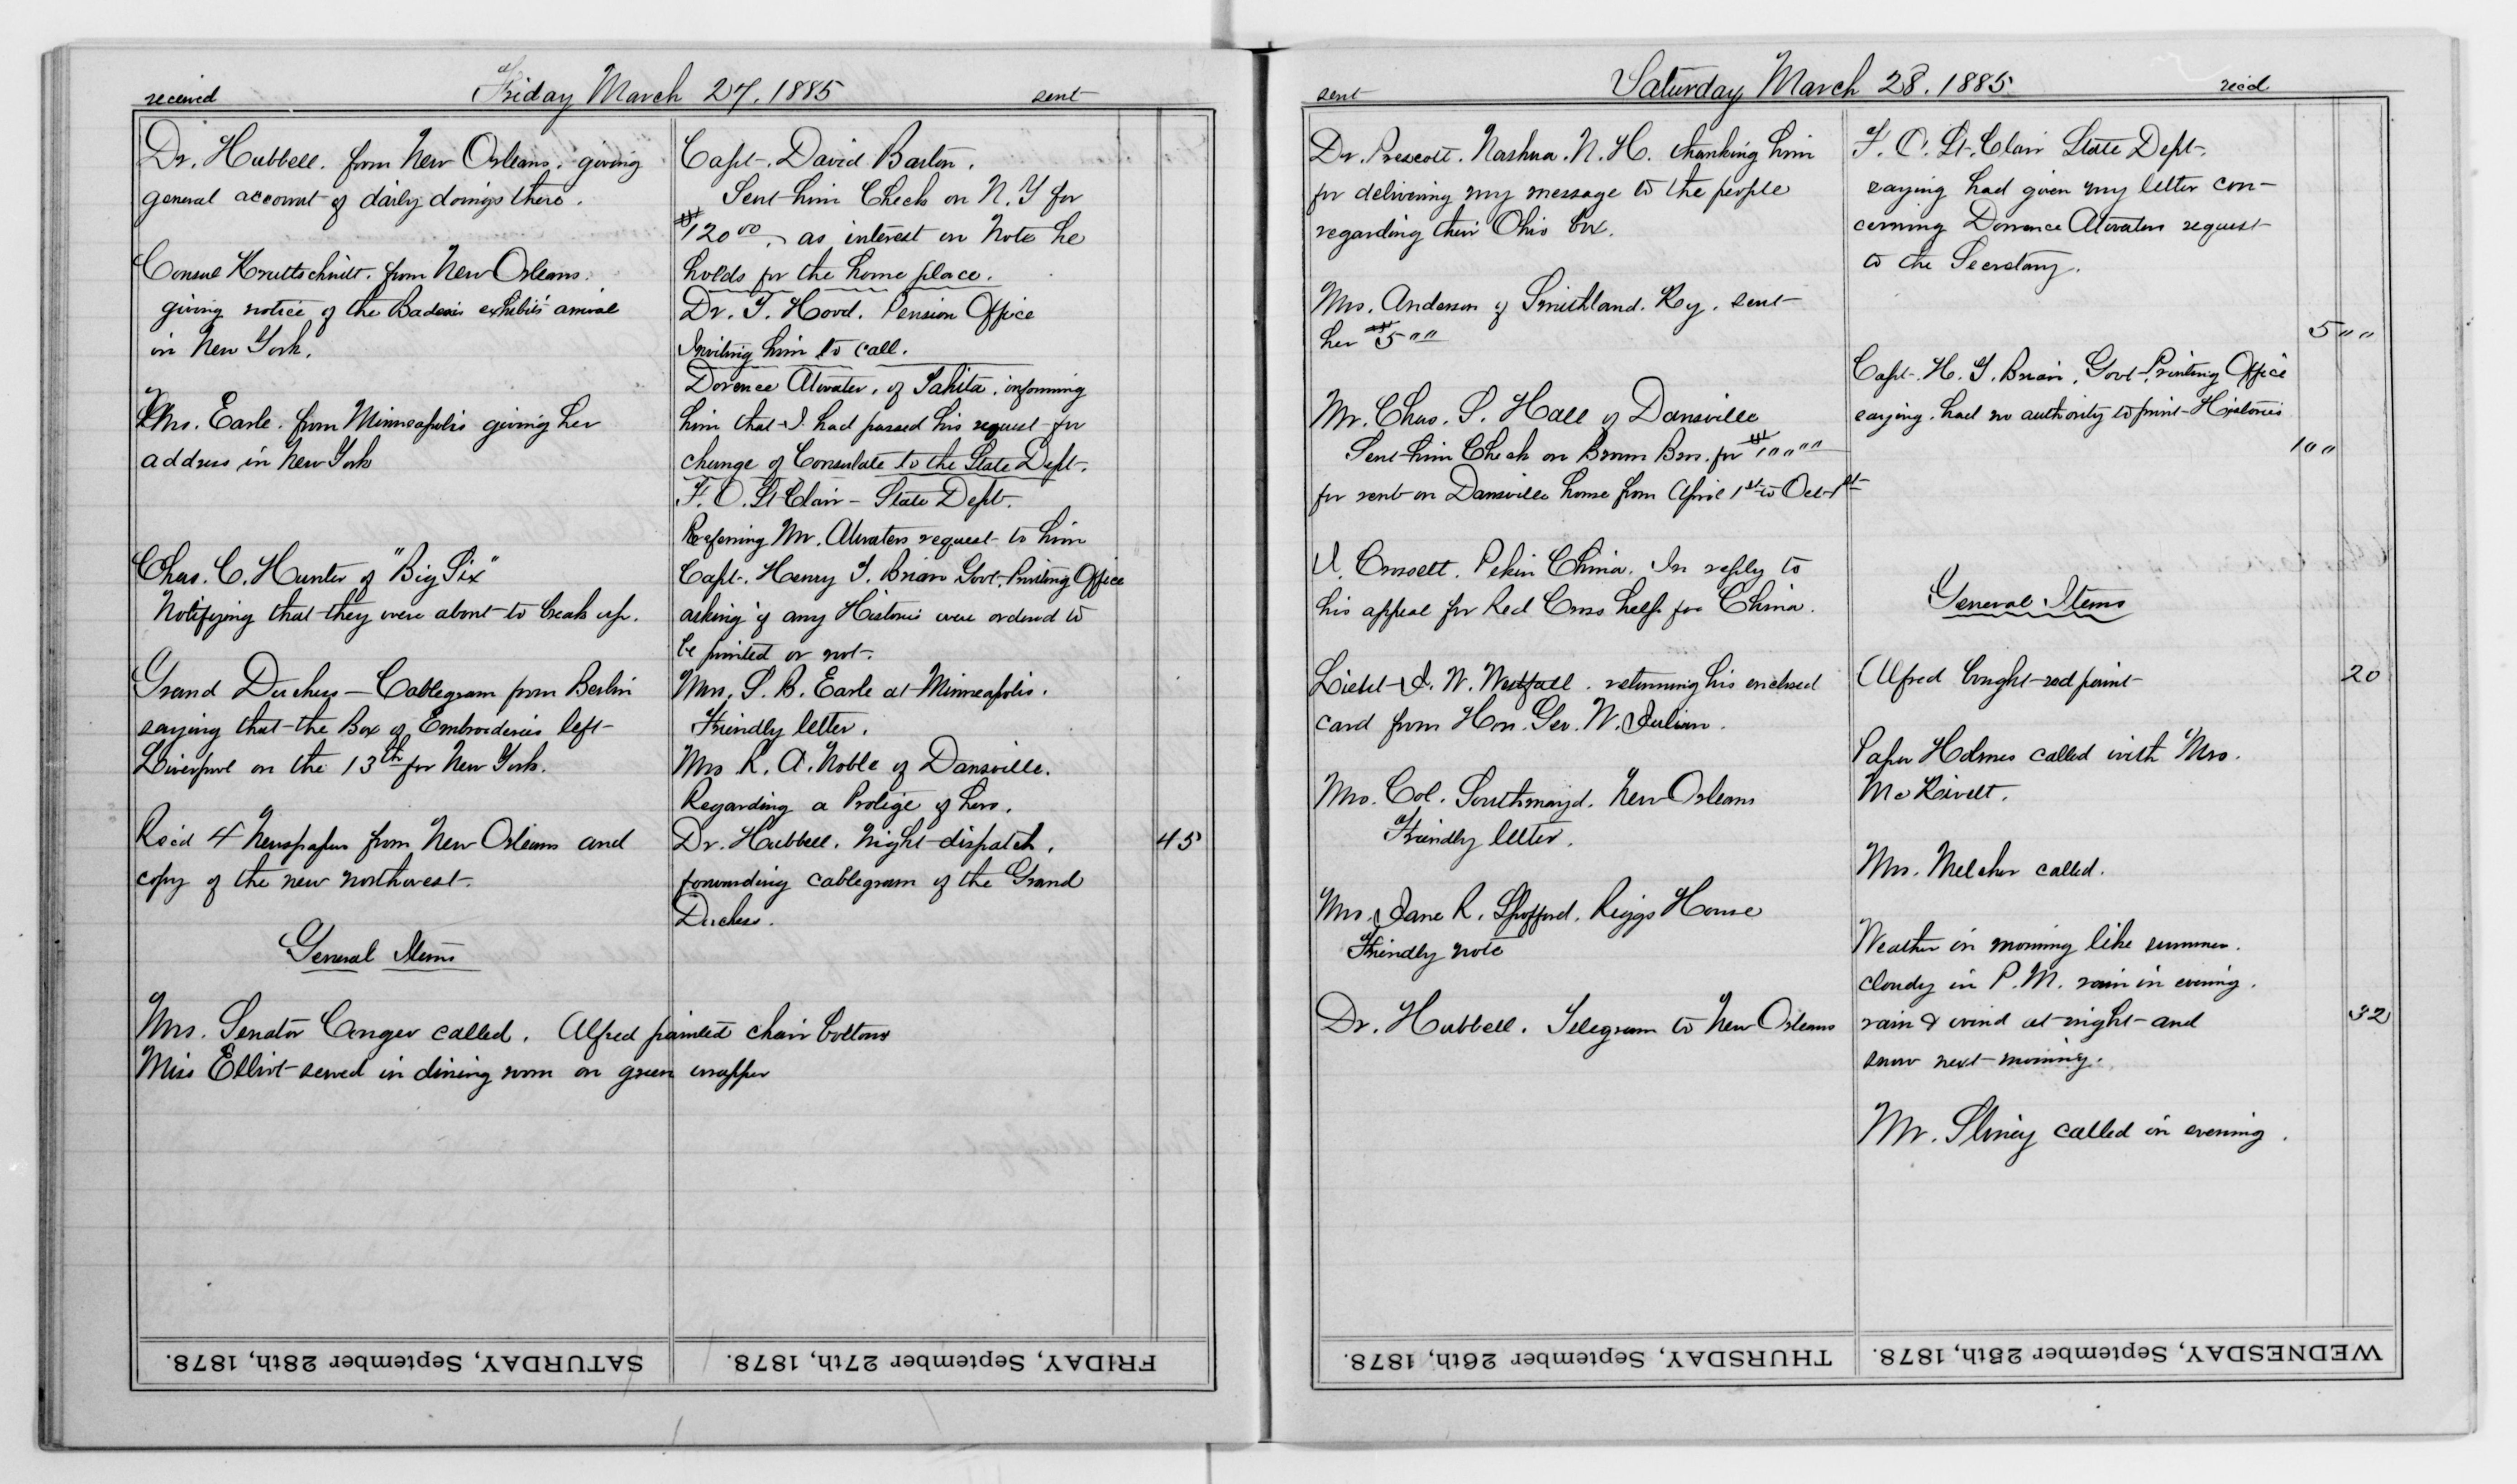 received Friday March 27, 1885 sent
Dr. Hubbell. from New Orleans. giving
general account of daily doings there.
Consul Kruttschnitt. from New Orleans.
giving notice of the Badois exhibits arrival
in New York.
Mrs. Earle. from Minneapolis giving her
address in New York
Chas. C. Hunter of "Big Six"
Notifying that they were about to break up.
Grand Duchess — Cablegram from Berlin
saying that the Box of Embroideries left
Liverpool on the 13th for New York.
Rec'd 4 Newspapers from New Orleans and
copy of the new northwest.
General Items
Mrs. Senator Conger called. Alfred painted chair bottoms
Miss Elliot sewed in dining room on green wrapper
Capt. David Barton.
Sent him Check on N. Y for
$120 00, as interest on Note he
holds for the home place.
Dr. T. Hood. Pension Office
Inviting him to call.
Dorence Atwater, of Tahita, informing
him that I had passed his request for
change of Consulate to the State Dept.
F. O. St Clair — State Dept.
Referring Mr. Atwaters request to him
Capt. Henry T. Brian Govt. Printing Office
asking if any Histories were ordered to
be printed or not.
Mrs. S. B. Earle at Minneapolis.
Friendly letter.
Mrs R. A. Noble of Dansville.
Regarding a Protige of hers.
Dr. Hubbell. Night dispatch. 45
forwarding cablegram of the Grand
Duchess.
SATURDAY, September 28th, 1878.
FRIDAY, September 27th, 1878.
sent Saturday March 28. 1885 rec'd
Dr. Prescott. Nashua. N. H. thanking him
for delivering my message to the people
regarding their Ohio box.
Mrs. Anderson of Smithland. Ky. sent
her $5 "" 5 ""
Mr. Chas. S. Hall of Dansville
Sent him Check on Brown Bros. for $100 "" 100
for rent on Dansville home from April 1st to Oct 1st
Crossett. Pekin China. In reply to
his appeal for Red Cross help for China.
J. W. Westfall. returning his enclosed
card from Hon. Geo. W. Julian.
Mrs. Col. Southmayd. New Orleans
Friendly letter.
Mrs. Jane R. Spofford. Riggs House
Friendly note
Dr. Hubbell. Telegram to New Orleans 32
F. O. St. Clair State Dept.
saying had given my letter con-
cerning Dorrence Atwaters request
to the Secretary.
Capt. H. T. Brian. Govt. Printing Office
saying. had no authority to print Histories
General Items
Alfred bought red paint 20
Holmes called with Mrs.
Mrs. Melcher called.
Weather in morning like summer.
cloudy in P. M. rain in evening.
rain & wind at night and
snow next morning.
Mr. called in evening.
THURSDAY, September 26th, 1878.
WEDNESDAY, September 25th, 1878.